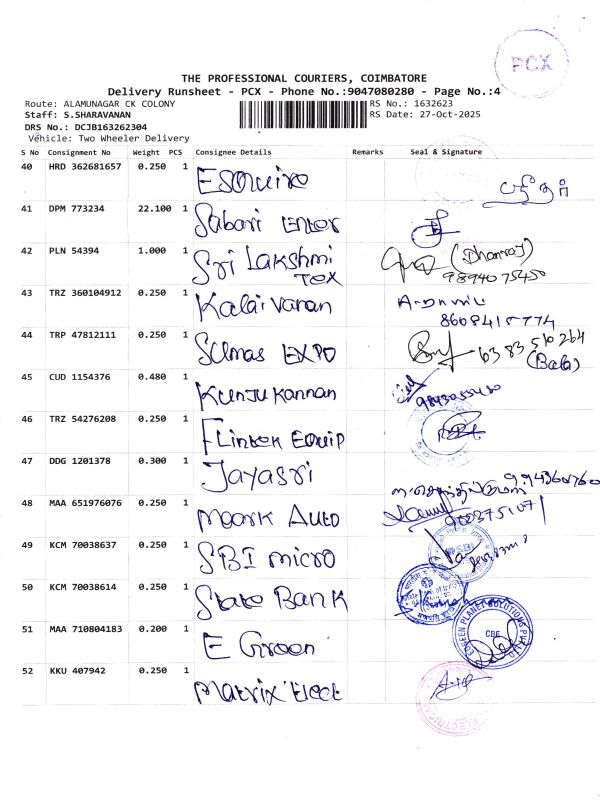 PCX
THE PROFESSIONAL COURIERS, COIMBATORE
Delivery Runsheet - PCX - Phone No.:9047080280 - Page No.:4
Route: ALAMUNAGAR CK COLONY RS No.: 1632623
Staff: S.SHARAVANAN RS Date: 27-Oct-2025
DRS No.: DCJB163262304
Vehicle: Two Wheeler Delivery
S No Consignment No Weight PCS Consignee Details Remarks Seal & Signature
40 HRD 362681657 0.250 1 Esquire
41 DPM 773234 22.100 1 Sabari Enter
42 PLN 54394 1.000 1 Sri Lakshmi Tex (Dhanraj)
9894075450
43 TRZ 360104912 0.250 1 Kalaivanan
8608415774
44 TRP 47812111 0.250 1 Sumas EXPO 6383510264
(Bala)
45 CUD 1154376 0.480 1 Kunju Kannan
46 TRZ 54276208 0.250 1 Flintek Equip
47 DDG 1201378 0.300 1 Jayasri
48 MAA 651976076 0.250 1 Moark Auto
49 KCM 70038637 0.250 1 SBI micro SBI
50 KCM 70038614 0.250 1 State Bank
51 MAA 710804183 0.200 1 E Green CBE
52 KKU 407942 0.250 1 Matrix Elect